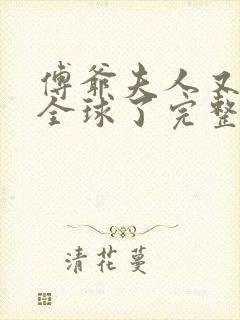 傅爺夫人又
全球了完整
清花蔓